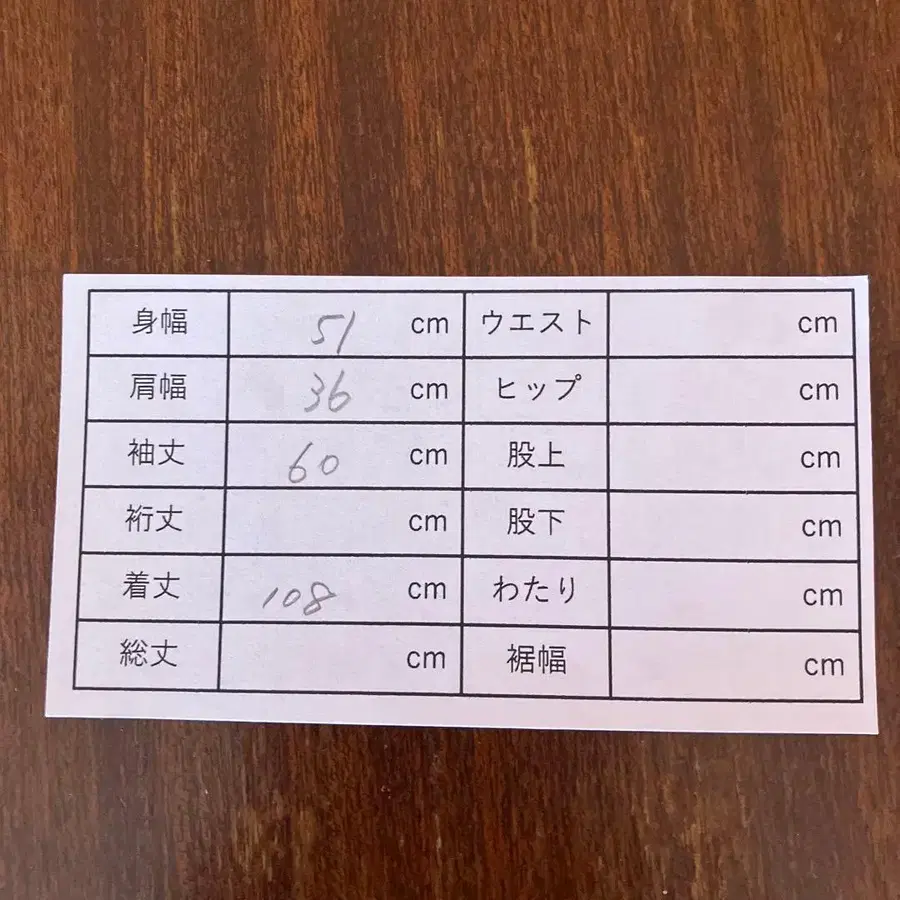 身幅 51 cm ウエスト cm
肩幅 36 cm ヒップ cm
袖丈 60 cm 股上 cm
裄丈 cm 股下 cm
着丈 108 cm わたり cm
総丈 cm 裾幅 cm